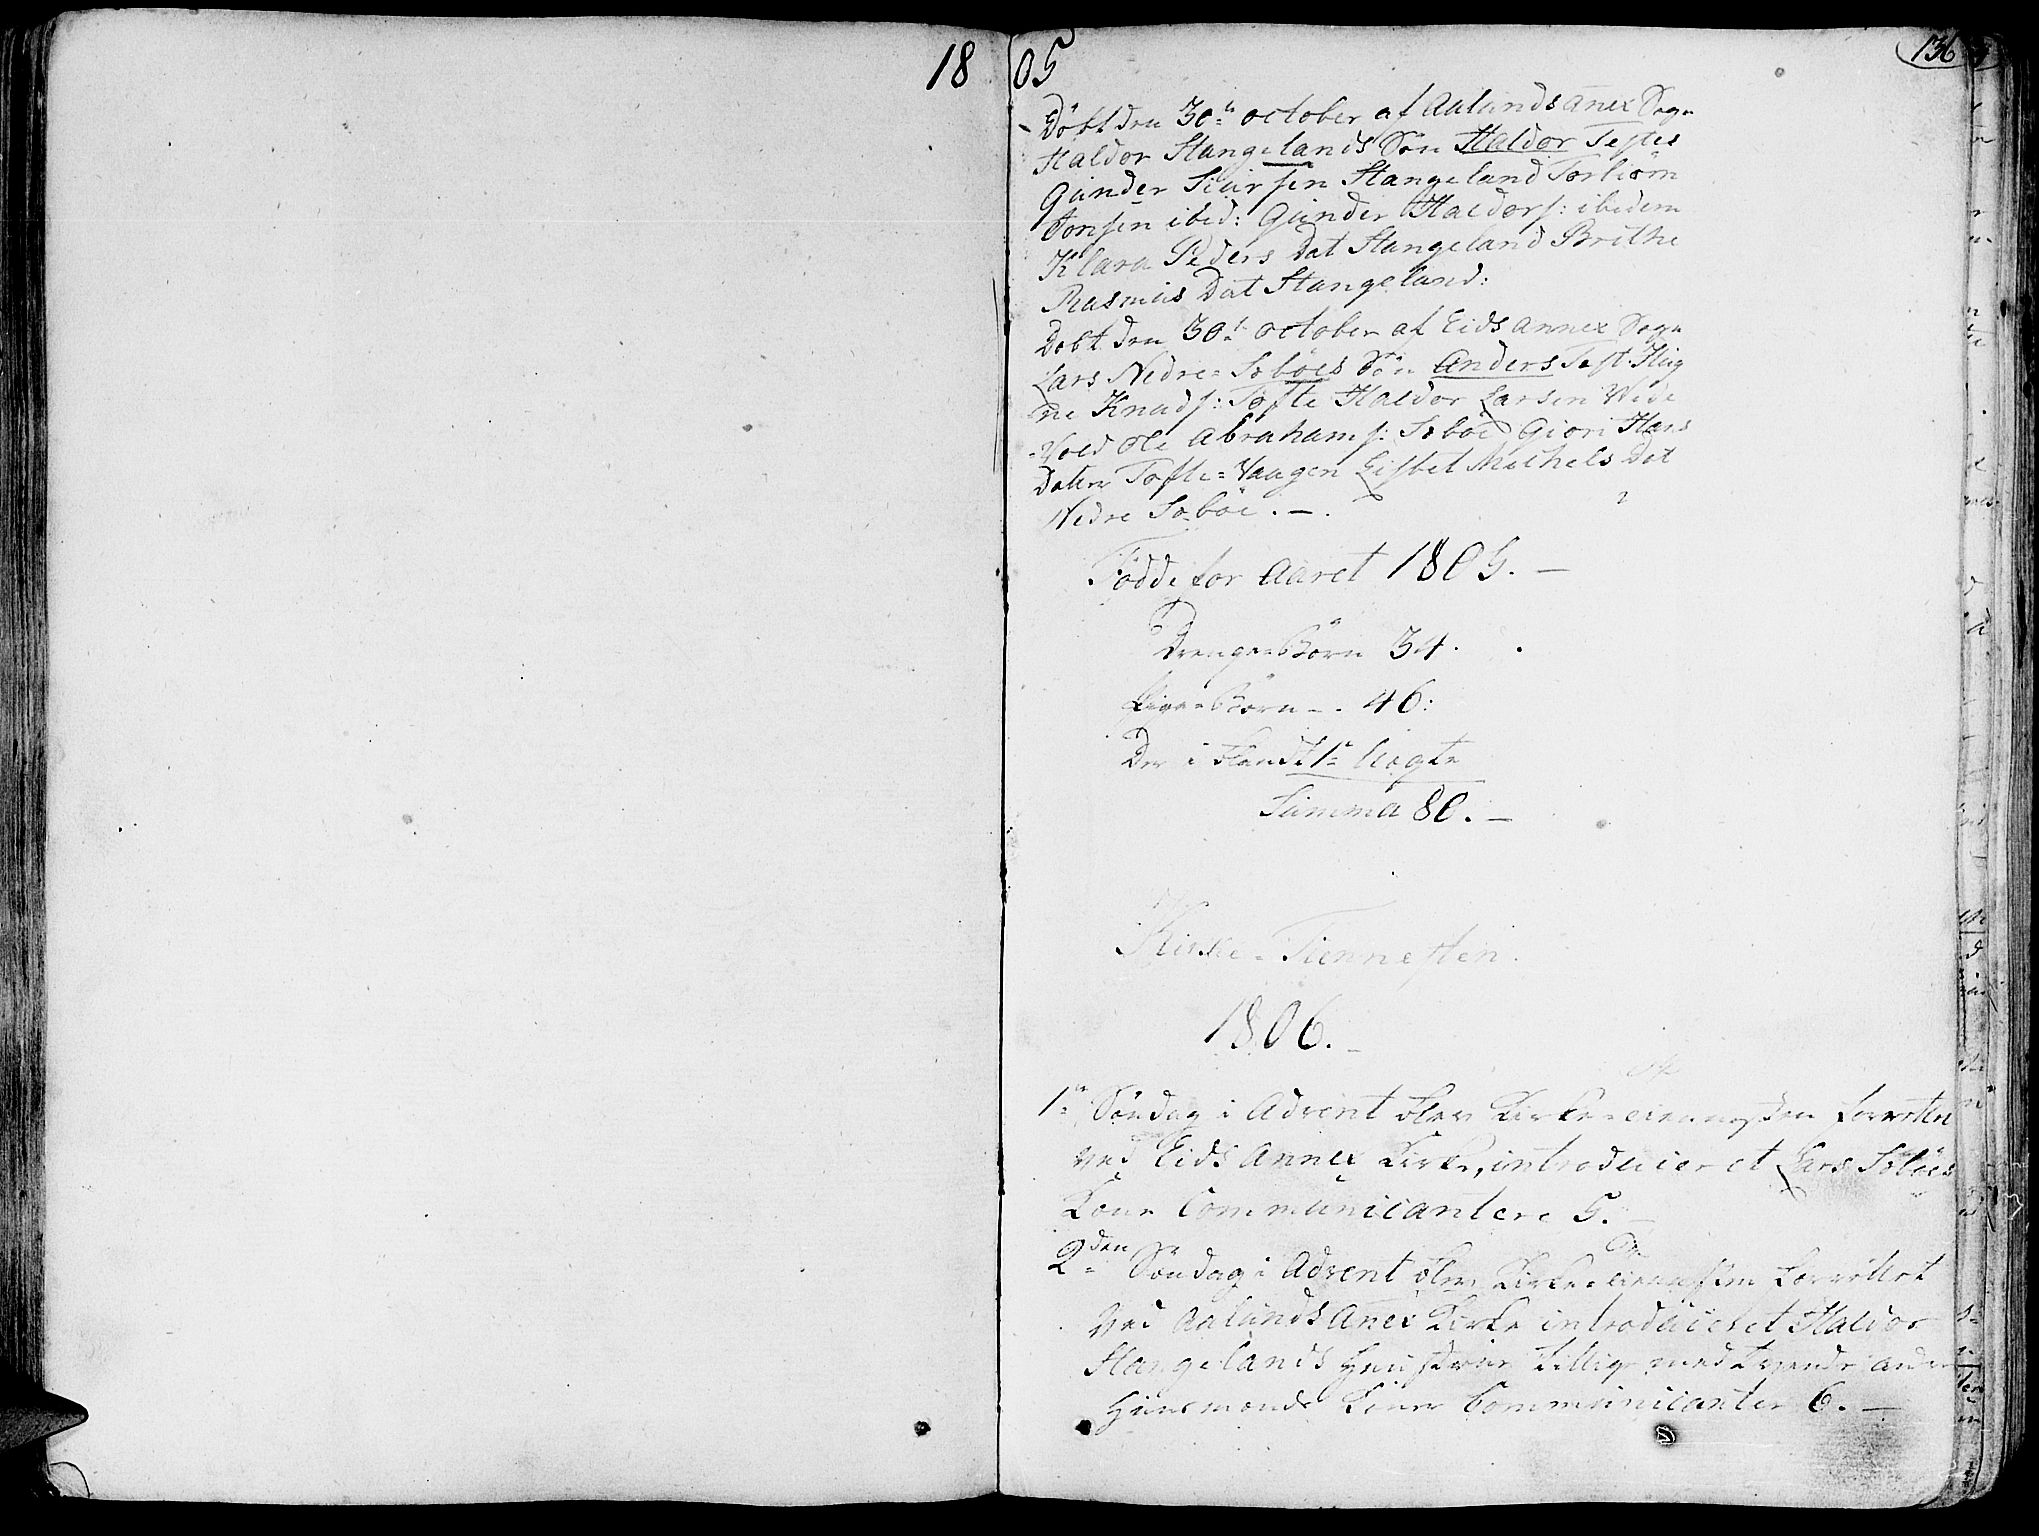 1805
136
Döbt den 30te october af Aalunds anex Sogn
Haldor Stangelands Sön Haldor Testes
Gunder Siursen Stangeland Torbiörn
Jonsen ibid: Gunder Haldors: ibidem
Klara Peders Dat Stangeland Brithe
Rasmus Dat Stangeland:
Döbt den 30t october af Eids annex Sogn
Lars Nedre=Söböes Sön Anders Test.
ne Knuds: Tofte Haldor Larsen Wide
=Vold Ole Abrahams: Söböe Giöri Hans
Datter Tofte=Vaagen Lisbet Michels Dat
Nedre Söböe. —.
Födde for Aaret 1805. —
Drenge=Börn 34.
Pige=Börn — . 46:
Der i blandt 1 uægte
Summa 80. —
Kirke=Tiennesten.
1806. —
1te Söndag i Advent blev Kirke=tiennesten forrettet
ved Eids Annex Kirke, introduceret Lars Söböes
Kone Communicantere 5. —
2den Söndag i Advent blev Kirke=tiennesten forrettet
ved Aalunds Anex Kirke introduceret Haldor
Stangelands Huustrue tillige med tvende andre
Huusmænds Koner Communicanter 6. —